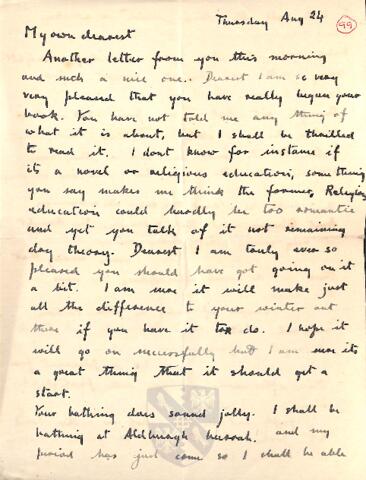 Thursday Aug 24
99
My own dearest
Another letter from you this morning
and such a nice one. Dearest I am so very
very pleased that you have really begun your
book. You have not told me any thing of
what it is about, but I shall be thrilled
to read it. I dont know for instance if
its a novel or religious education, some thing
you say makes me think the former, Religious
education could hardly be too romantic
and yet you talk of it not remaining
day theory. Dearest I am truly ever so
pleased you should have got going on it
a bit. I am sure it will make just
all the difference to your winter out
there if you have it to do. I hope it
will go on successfully but I am sure its
a great thing that it should get a
start.
Your bathing does sound jolly. I shall be
bathing at Aldburgh hurrah. and my
period has just come so I shall be able